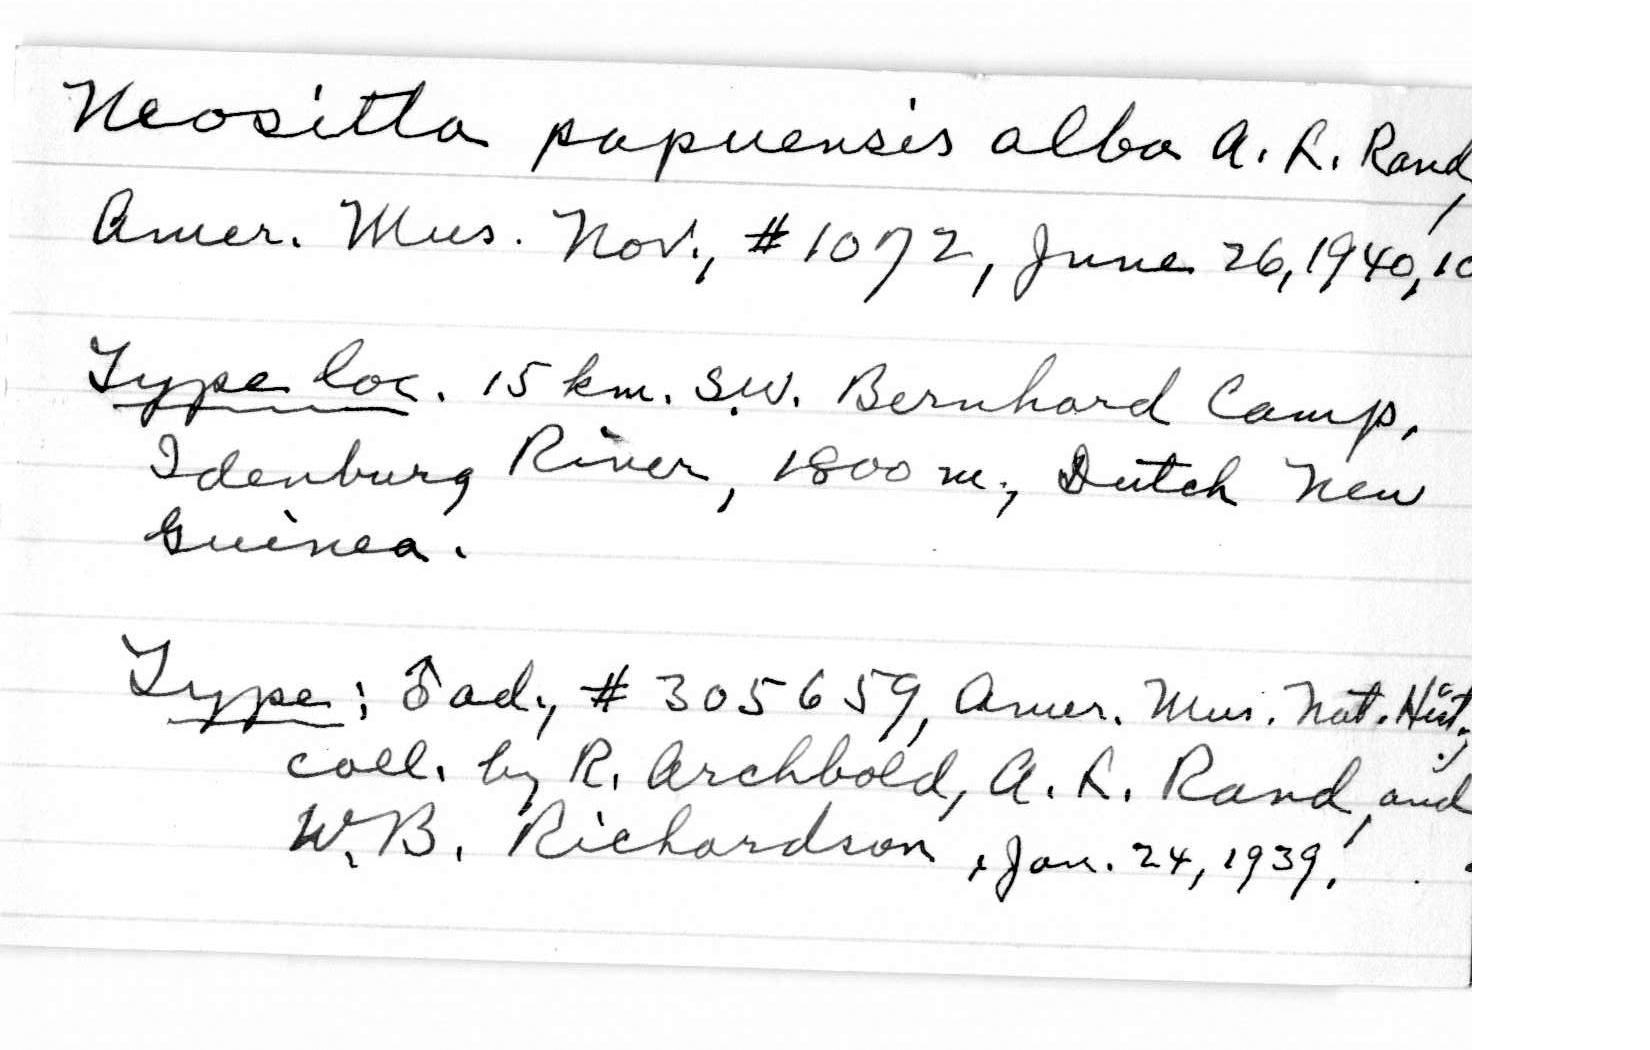 Neositta papuensis alba A. L. Rand,
Amer. Mus. Nov., #1072, June 26, 1940, 10
Type loc. 15 km. S.W. Bernhard Camp,
Idenburg River, 1800 m., Dutch New
Guinea.
Type: ♂ ad., #305659, Amer. Mus. Nat. Hist.;
coll. by R. Archbold, A. L. Rand, and
W. B. Richardson, Jan. 24, 1939.